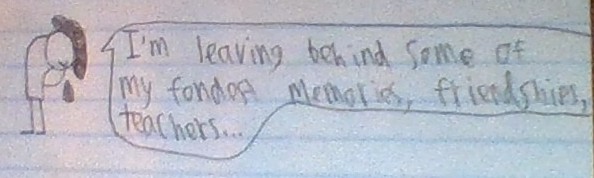 I'm leaving behind some of
my fondest memories, friendships,
teachers...